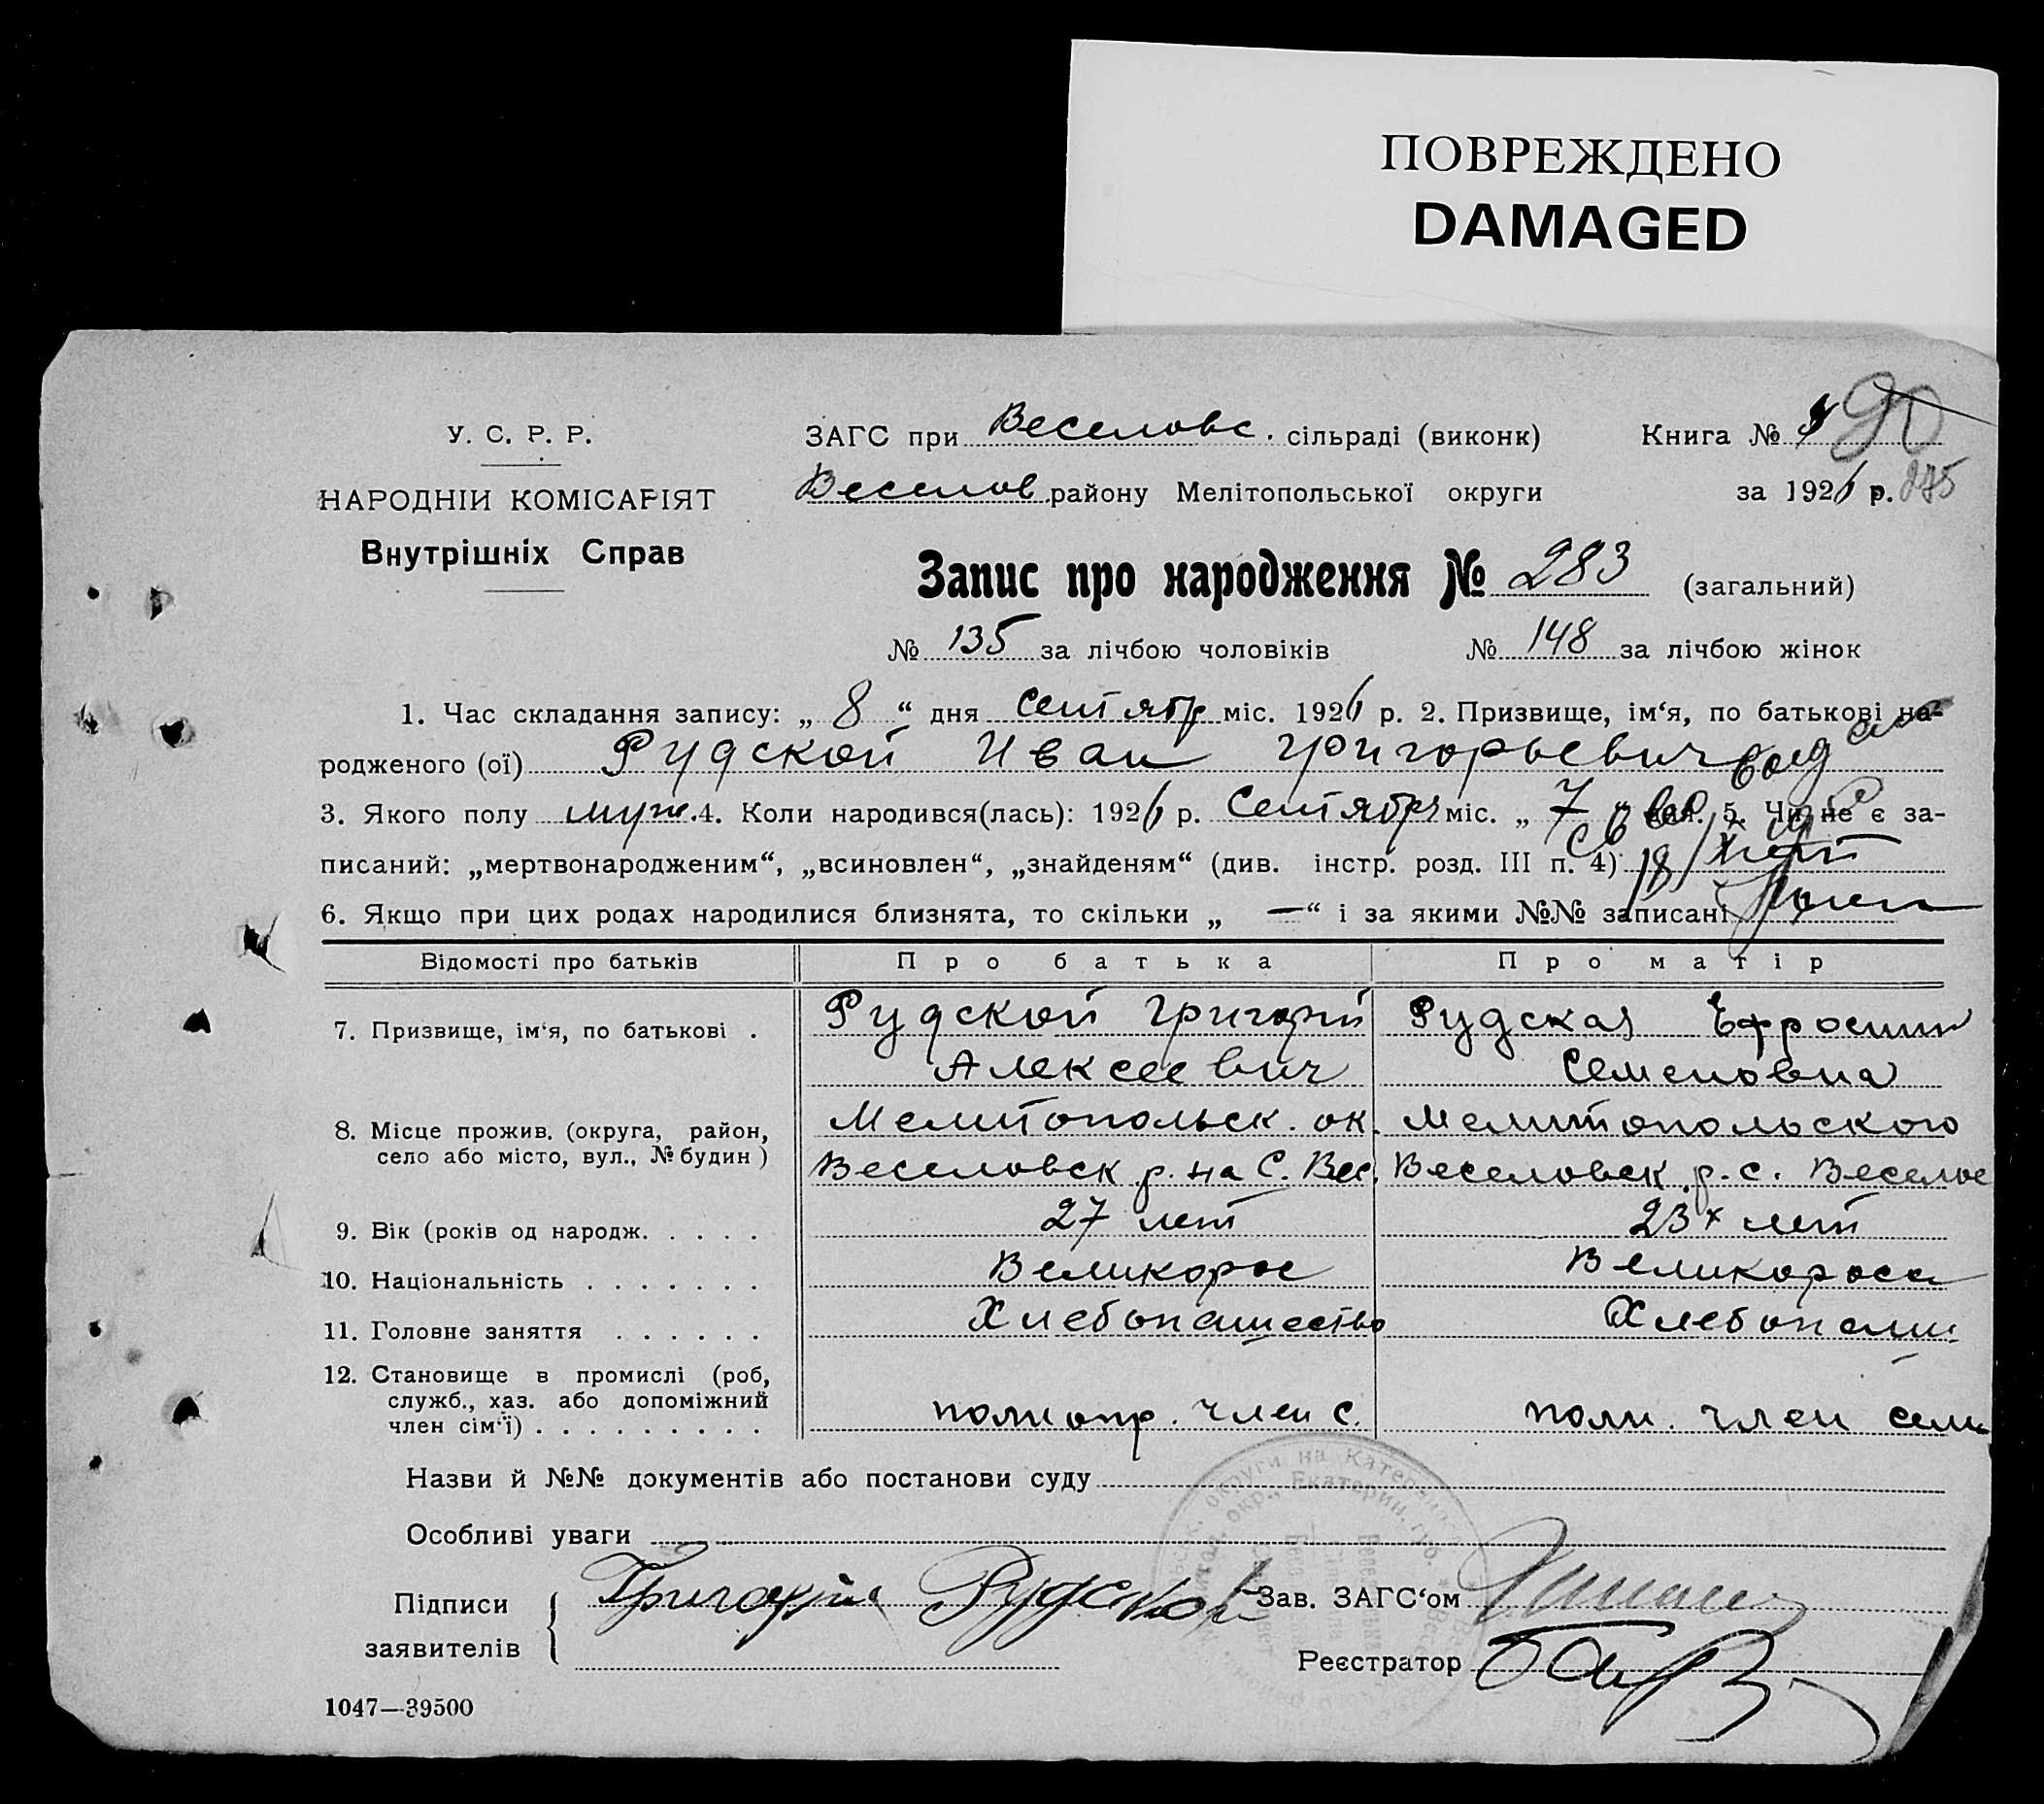 ПОВРЕЖДЕНО
DAMAGED
У. С. Р. Р.
НАРОДНІЙ КОМІСАРІЯТ
Внутрішніх Справ
ЗАГС при Веселовс. сільраді (виконк)
Книга № 90
Веселов району Мелітопольської округи
за 1926 р. 275
Запис про народження № 283 (загальний)
№ 135 за лічбою чоловіків № 148 за лічбою жінок
1. Час складання запису: „ 8 “ дня Сентябр міс. 1926 р. 2. Призвище, ім‘я, по батькові на-
родженого (ої) Рудской Иван Григорьевич
3. Якого полу муж. 4. Коли народився(лась): 1926 р. Сентября міс. „ 7 “ дня. 5. Чи не є за-
писаний: „мертвонародженим“, „всиновлен“, „знайденям“ (див. інстр. розд. III п. 4)
6. Якщо при цих родах народилися близнята, то скільки „ — “ і за якими №№ записані
Відомості про батьків Про батька Про матір
7. Призвище, ім‘я, по батькові . Рудской Григорий Рудская Ефросин
Алексеевич Семеновна
8. Місце прожив. (округа, район, Мелитопольск. ок. Мелитопольского
село або місто, вул., № будин) Веселовск р. на С. Вес. Веселовск р. с. Веселое
9. Вік (років од народж. . . . . 27 лет 23х лет
10. Національність . . . . . . . Великорос Великоросс
11. Головне заняття . . . . . . Хлебопашество Хлебопаш
12. Становище в промислі (роб,
служб., хаз. або допоміжний
член сім‘ї) . . . . . . . . . член с. член сем
Назви й №№ документів або постанови суду
Особливі уваги
Підписи
заявителів
Григорий Рудской
Зав. ЗАГС‘ом
Реєстратор
1047—39500